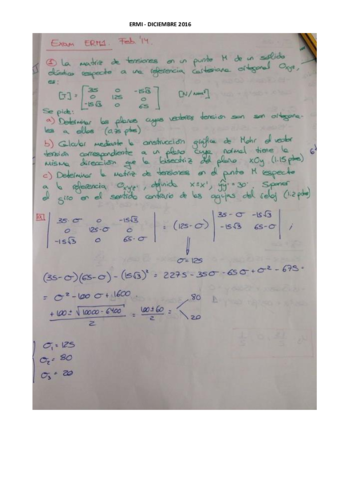 ERMI - DICIEMBRE 2016
Exam ERMI Feb 14
La matriz de tensiones en un punto M de un sólido
elástico respecto a una referencia cartesiana ortogonal Oxyz,
es:
[T] = [35 0 -15√3
0 125 0
-15√3 0 65] [N/mm²]
Se pide:
a) Determinar los planos cuyos vectores tensión son ortogona-
les a ellos
b) Calcular mediante la construcción gráfica de Mohr el vector
tensión correspondiente a un plano cuya normal tiene la
misma dirección que la bisectriz del plano xOy (1.25 ptos)
c) Determinar la matriz de tensiones en el punto M respecto
a la referencia definida 30º. Suponer
el giro en el sentido contrario de las agujas del reloj (1.2 ptos)
|35-σ 0 -15√3| |35-σ -15√3|
|0 125-σ 0| = (125-σ) |-15√3 65-σ| ;
|-15√3 0 65-σ|
σ=125
(35-σ)(65-σ) - (15√3)² = 2275 - 35σ - 65σ + σ² - 675 =
= σ² - 100σ + 1600.
+100 ± √(10000 - 6400) / 2 = 100 ± 60 / 2 = 80
20
σ₁ = 125
σ₂ = 80
σ₃ = 20